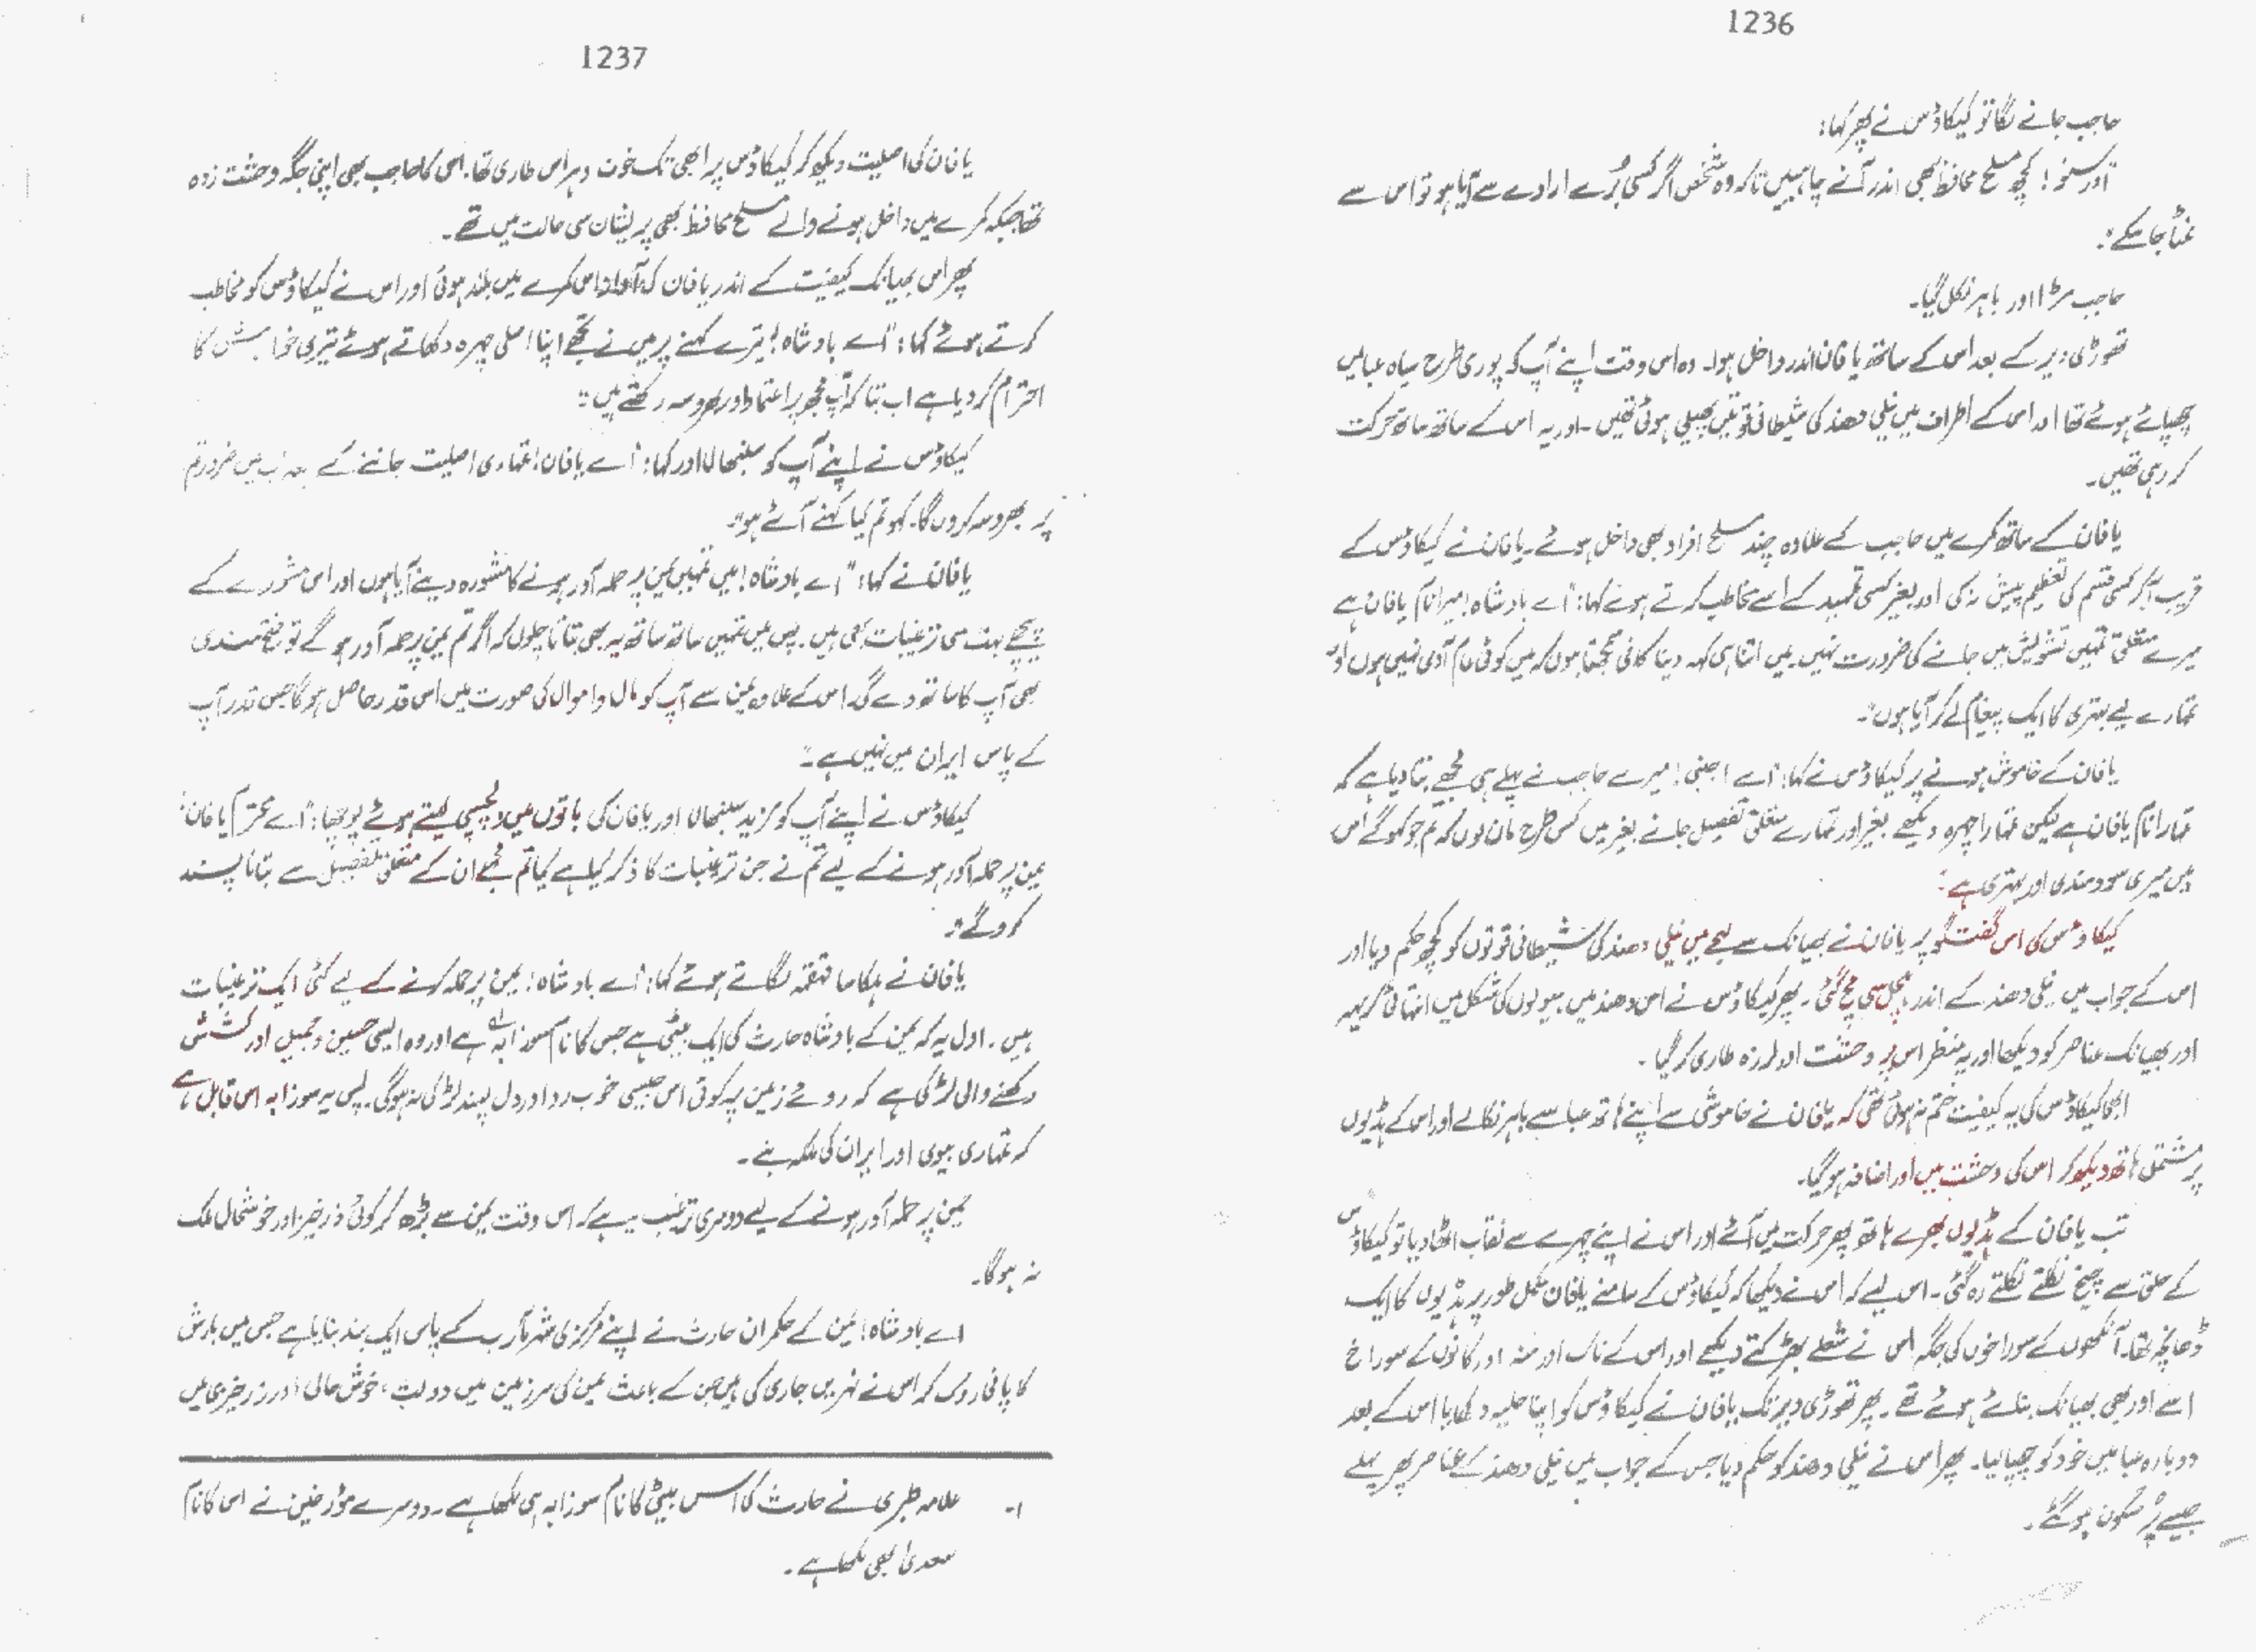 1236
حاجب جانے لگا تو کیکاؤس نے پھر کہا:
"اور سنو! کچھ مسلح محافظ بھی اندر آنے چاہییں تاکہ وہ شخص اگر کسی بُرے ارادے سے آیا ہو تو اس سے
نمٹا جا سکے"۔
حاجب مڑا اور باہر نکل گیا۔
تھوڑی دیر کے بعد اس کے ساتھ یافان اندر داخل ہوا۔ وہ اس وقت اپنے آپ کو پوری طرح سیاہ عبا میں
چھپائے ہوئے تھا اور اس کے اطراف میں نیلی دھند کی شیطانی قوتیں پھیلی ہوئی تھیں۔ اور یہ اس کے ساتھ ساتھ حرکت
کر رہی تھیں۔
یافان کے ساتھ کمرے میں حاجب کے علاوہ چند مسلح افراد بھی داخل ہوئے۔ یافان نے کیکاؤس کے
قریب آ کر کسی قسم کی تعظیم پیش نہ کی اور بغیر کسی تمہید کے اسے مخاطب کرتے ہوئے کہا: "اے بادشاہ! میرا نام یافان ہے
میرے متعلق تمہیں تشویش میں جانے کی ضرورت نہیں۔ میں اتنا ہی کہہ دینا کافی سمجھتا ہوں کہ میں کوئی عام آدمی نہیں ہوں اور
تمہارے لیے بہتری کا ایک پیغام لے کر آیا ہوں"۔
یافان کے خاموش ہونے پر کیکاؤس نے کہا: "اے اجنبی! میرے حاجب نے پہلے ہی مجھے بتا دیا ہے کہ
تمہارا نام یافان ہے لیکن تمہارا چہرہ دیکھے بغیر اور تمہارے متعلق تفصیل جانے بغیر میں کس طرح مان لوں کہ تم جو کہو گے اس
میں میری سود مندی اور بہتری ہے"۔
کیکاؤس کی اس گفتگو پر یافان نے بھیانک سے لہجے میں نیلی دھند کی شیطانی قوتوں کو کچھ حکم دیا اور
اس کے جواب میں نیلی دھند کے اندر ہلچل سی مچ گئی۔ پھر کیکاؤس نے اس دھند میں ہیولوں کی شکل میں انتہائی کریہہ
اور بھیانک عناصر کو دیکھا اور یہ منظر اس پر وحشت اور لرزہ طاری کر گیا۔
ابھی کیکاؤس کی یہ کیفیت ختم نہ ہوئی تھی کہ یافان نے خاموشی سے اپنے ہاتھ عبا سے باہر نکالے اور اس کے ہڈیوں
پر مشتمل ہاتھ دیکھ کر اس کی وحشت میں اور اضافہ ہو گیا۔
تب یافان کے ہڈیوں بھرے ہاتھ پھر حرکت میں آئے اور اس نے اپنے چہرے سے نقاب اٹھا دیا تو کیکاؤس
کے حلق سے چیخ نکلتے نکلتے رہ گئی۔ اس لیے کہ اس نے دیکھا کہ کیکاؤس کے سامنے یافان مکمل طور پر ہڈیوں کا ایک
ڈھانچہ تھا۔ آنکھوں کے سوراخوں کی جگہ اس نے شعلے بھڑکتے دیکھے اور اس کے ناک اور منہ اور کانوں کے سوراخ
اسے اور بھی بھیانک بنائے ہوئے تھے۔ پھر تھوڑی دیر تک یافان نے کیکاؤس کو اپنا حلیہ دکھایا اس کے بعد
دوبارہ عبا میں خود کو چھپا لیا۔ پھر اس نے نیلی دھند کو حکم دیا جس کے جواب میں نیلی دھند کے عناصر پھر پہلے
جیسے پُرسکون ہو گئے۔
1237
یافان کی اصلیت دیکھ کر کیکاؤس پر ابھی تک خوف و ہراس طاری تھا۔ اس کا حاجب بھی اپنی جگہ وحشت زدہ
تھا جبکہ کمرے میں داخل ہونے والے مسلح محافظ بھی پریشان سی حالت میں تھے۔
پھر اس بھیانک کیفیت کے اندر یافان کی آواز اس کمرے میں بلند ہوئی اور اس نے کیکاؤس کو مخاطب
کرتے ہوئے کہا: "اے بادشاہ! تیرے کہنے پر میں نے تجھے اپنا اصلی چہرہ دکھاتے ہوئے تیری خواہش کا
احترام کر دیا ہے اب بتا کہ آپ مجھ پر اعتماد اور بھروسہ رکھتے ہیں"؟
کیکاؤس نے اپنے آپ کو سنبھالا اور کہا: "اے یافان! تمہاری اصلیت جاننے کے بعد اب میں ضرور تم
پر بھروسہ کروں گا۔ کہو تم کیا کہنے آئے ہو"۔
یافان نے کہا: "اے بادشاہ! میں تمہیں یمن پر حملہ آور ہونے کا مشورہ دینے آیا ہوں اور اس مشورے کے
پیچھے بہت سی ترغیبات بھی ہیں۔ پس میں تمہیں ساتھ ساتھ یہ بھی بتاتا چلوں کہ اگر تم یمن پر حملہ آور ہو گے تو فتح مندی
بھی آپ کا ساتھ دے گی۔ اس کے علاوہ یمن سے آپ کو مال و اموال کی صورت میں اس قدر حاصل ہو گا جس قدر آپ
کے پاس ایران میں نہیں ہے"۔
کیکاؤس نے اپنے آپ کو مزید سنبھالا اور یافان کی باتوں میں دلچسپی لیتے ہوئے پوچھا: "اے محترم یافان!
یمن پر حملہ آور ہونے کے لیے تم نے جن ترغیبات کا ذکر کیا ہے کیا تم مجھے ان کے متعلق تفصیل سے بتانا پسند
کرو گے"؟
یافان نے ہلکا سا قہقہہ لگاتے ہوئے کہا: "اے بادشاہ! یمن پر حملہ کرنے کے لیے کئی ایک ترغیبات
ہیں۔ اول یہ کہ یمن کے بادشاہ حارث کی ایک بیٹی ہے جس کا نام سوزابہ ہے اور وہ ایسی حسین و جمیل اور کشش
رکھنے والی لڑکی ہے کہ روئے زمین پر کوئی اس جیسی خوب رو اور دل پسند لڑکی نہ ہو گی۔ پس یہ سوزابہ اس قابل ہے
کہ تمہاری بیوی اور ایران کی ملکہ بنے۔
یمن پر حملہ آور ہونے کے لیے دوسری ترغیب یہ ہے کہ اس وقت یمن سے بڑھ کر کوئی زرخیز اور خوشحال ملک
نہ ہو گا۔
اے بادشاہ! یمن کے حکمران حارث نے اپنے مرکزی شہر مآرب کے پاس ایک بند بنایا ہے جس میں بارش
کا پانی روک کر اس نے نہریں جاری کی ہیں جن کے باعث یمن کی سرزمین میں دولت، خوش حالی اور زرخیزی میں
۱۔ علامہ طبری نے حارث کی اس بیٹی کا نام سوزابہ ہی لکھا ہے۔ دوسرے مؤرخین نے اس کا نام
سعدیٰ بھی لکھا ہے۔